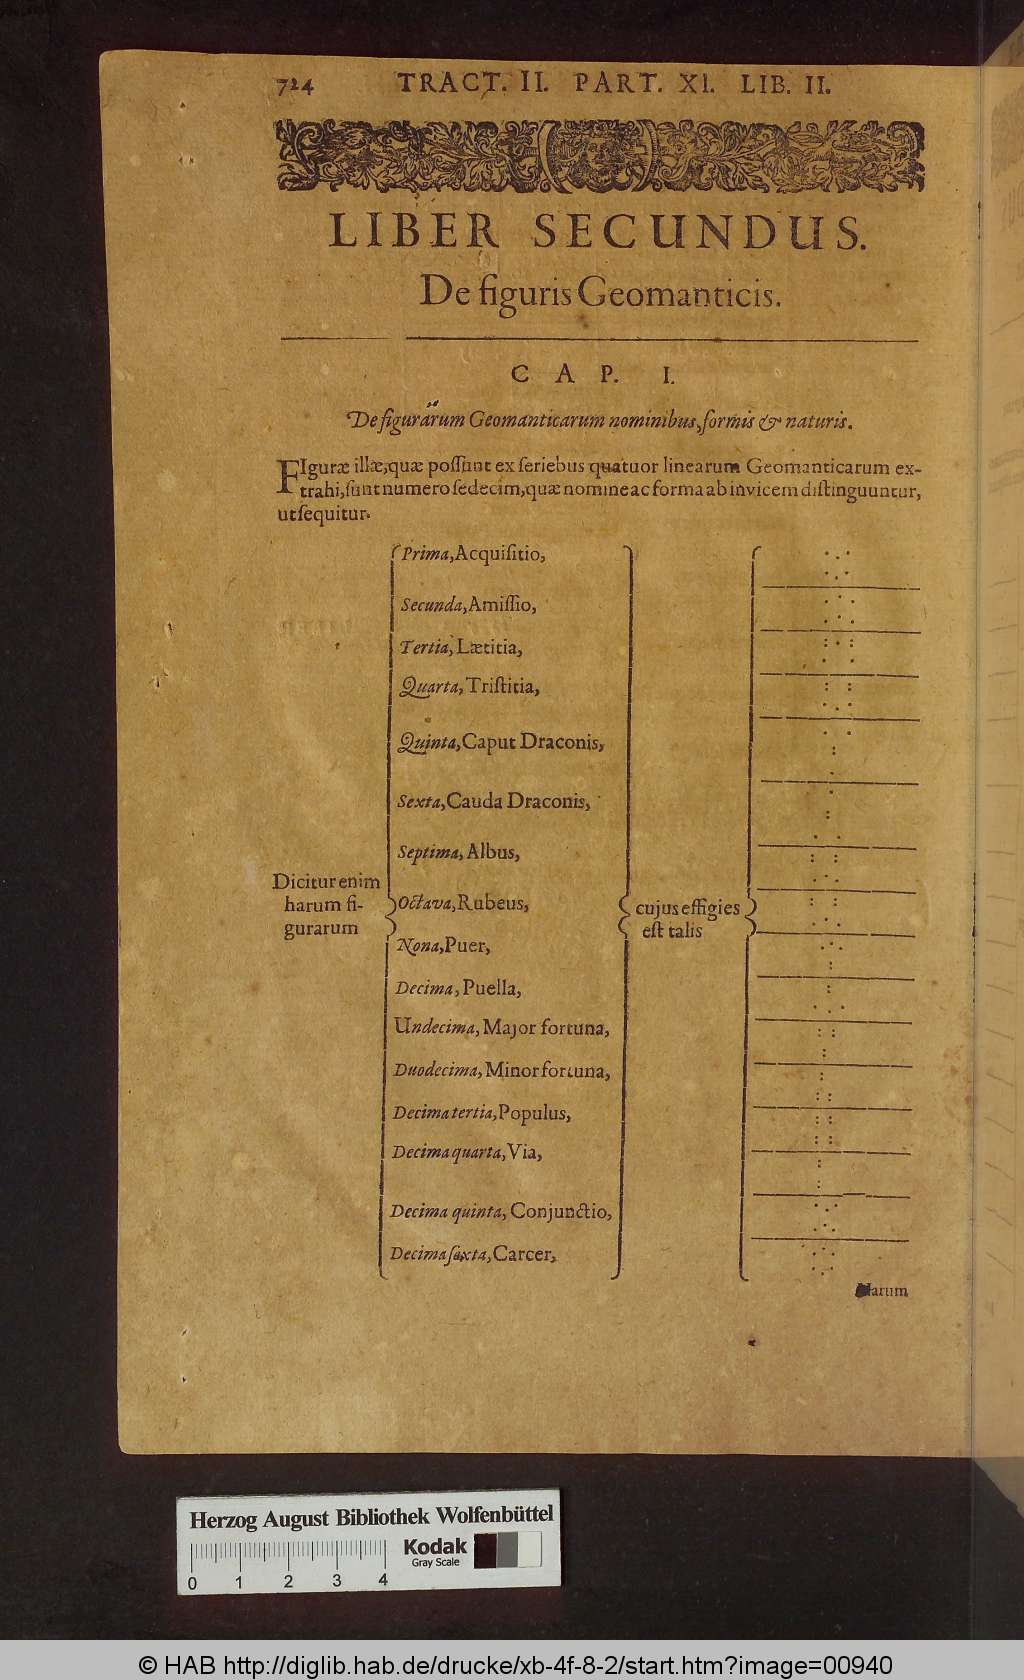 724 TRACT. II. PART. XI. LIB. II.
LIBER SECUNDUS.
De figuris Geomanticis.
CAP. I.
De figurarum Geomanticarum nominibus, formis & naturis.
FIguræ illæ, quæ possunt ex seriebus quatuor linearum Geomanticarum ex-
trahi, sunt numero sedecim, quæ nomine ac forma ab invicem distinguuntur,
ut sequitur.
Dicitur enim
harum fi-
gurarum
Prima, Acquisitio,
Secunda, Amissio,
Tertia, Lætitia,
Quarta, Tristitia,
Quinta, Caput Draconis,
Sexta, Cauda Draconis,
Septima, Albus,
Octava, Rubeus,
Nona, Puer,
Decima, Puella,
Undecima, Major fortuna,
Duodecima, Minor fortuna,
Decima tertia, Populus,
Decima quarta, Via,
Decima quinta, Conjunctio,
Decima sexta, Carcer,
cujus effigies
est talis
Harum
Herzog August Bibliothek Wolfenbüttel
Kodak
Gray Scale
0 1 2 3 4
© HAB http://diglib.hab.de/drucke/xb-4f-8-2/start.htm?image=00940